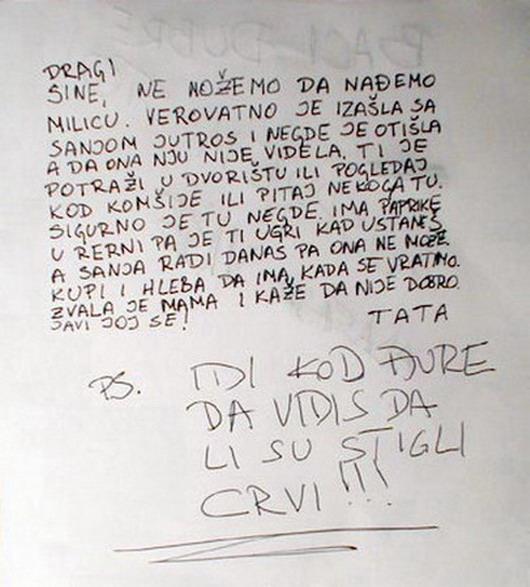 DRAGI
SINE, NE MOŽEMO DA NAĐEMO
MILICU. VEROVATNO JE IZAŠLA SA
SANJOM JUTROS I NEGDE JE OTIŠLA
A DA ONA NJU NIJE VIDELA. TI JE
POTRAŽI U DVORIŠTU ILI POGLEDAJ
KOD KOMŠIJE ILI PITAJ NEKOGA TU.
SIGURNO JE TU NEGDE. IMA PAPRIKE
U RERNI PA JE TI UGRI KAD USTANEŠ
A SANJA RADI DANAS PA ONA NE MOŽE.
KUPI I HLEBA DA IMA, KADA SE VRATIMO.
ZVALA JE MAMA I KAŽE DA NIJE DOBRO.
JAVI JOJ SE! TATA
PS. IDI KOD ĐURE
DA VIDIS DA
LI SU STIGLI
CRVI!!!
BACI ĐUBRE